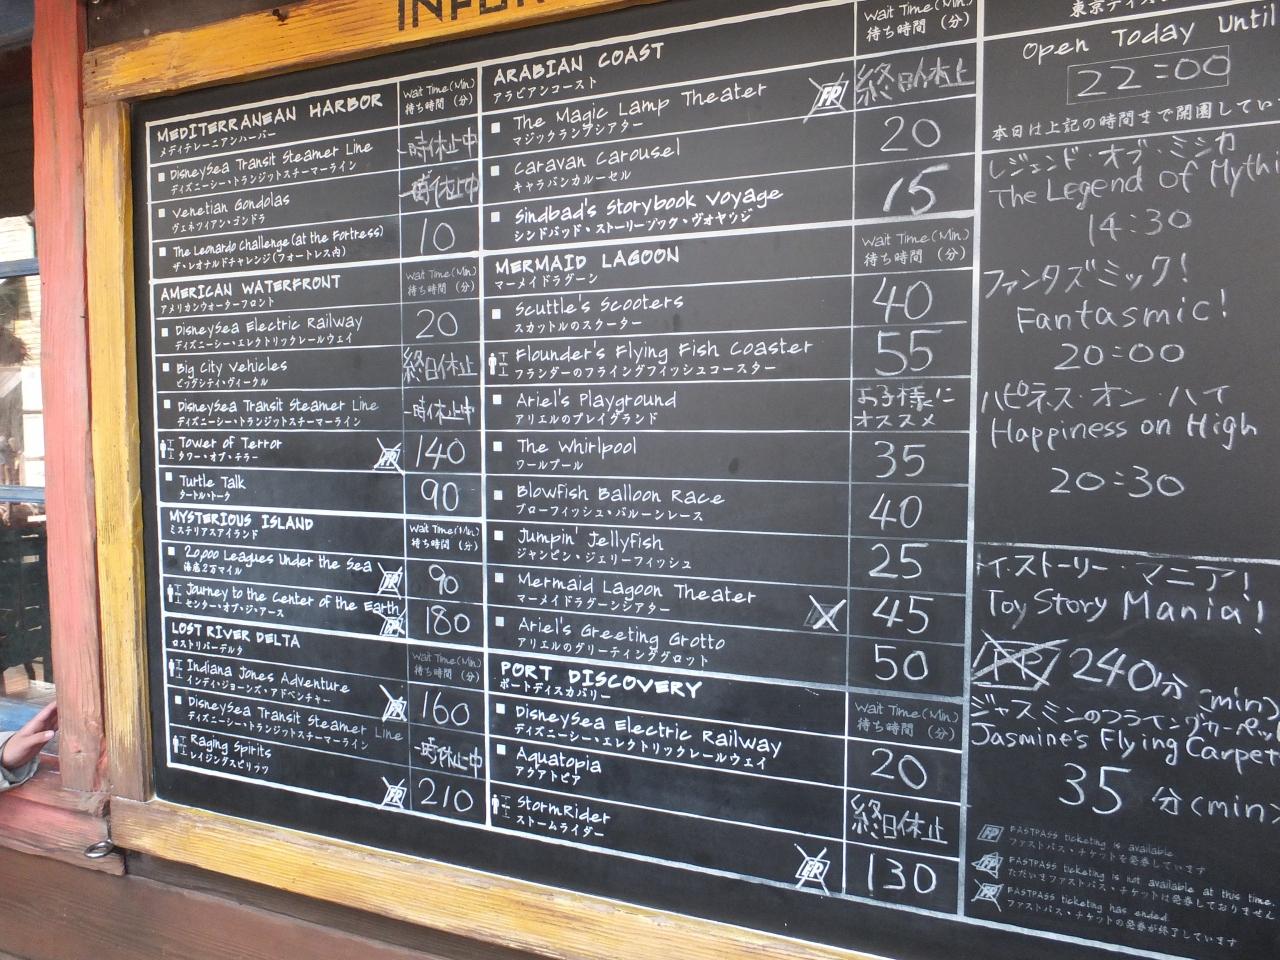 MEDITERRANEAN HARBOR
メディテレーニアンハーバー
Wait Time(Min.)
待ち時間 (分)
DisneySea Transit Steamer Line
ディズニーシー・トランジットスチーマーライン
一時休止中
Venetian Gondolas
ヴェネツィアン・ゴンドラ
一時休止中
The Leonardo Challenge (at the Fortress)
ザ・レオナルドチャレンジ(フォートレス内)
10
AMERICAN WATERFRONT
アメリカンウォーターフロント
Wait Time(Min.)
待ち時間 (分)
DisneySea Electric Railway
ディズニーシー・エレクトリックレールウェイ
20
Big City Vehicles
ビッグシティ・ヴィークル
終日休止
DisneySea Transit Steamer Line
ディズニーシー・トランジットスチーマーライン
一時休止中
Tower of Terror
タワー・オブ・テラー
FP
140
Turtle Talk
タートル・トーク
90
MYSTERIOUS ISLAND
ミステリアスアイランド
Wait Time(Min.)
待ち時間 (分)
20,000 Leagues Under the Sea
海底2万マイル
FP
90
Journey to the Center of the Earth
センター・オブ・ジ・アース
FP
180
LOST RIVER DELTA
ロストリバーデルタ
Wait Time(Min.)
待ち時間 (分)
Indiana Jones Adventure
インディ・ジョーンズ・アドベンチャー
FP
160
DisneySea Transit Steamer Line
ディズニーシー・トランジットスチーマーライン
一時休止中
Raging Spirits
レイジングスピリッツ
FP
210
ARABIAN COAST
アラビアンコースト
Wait Time(Min.)
待ち時間 (分)
The Magic Lamp Theater
マジックランプシアター
FP
終日休止
Caravan Carousel
キャラバンカルーセル
20
Sindbad's Storybook Voyage
シンドバッド・ストーリーブック・ヴォヤッジ
15
MERMAID LAGOON
マーメイドラグーン
Wait Time(Min.)
待ち時間 (分)
Scuttle's Scooters
スカットルのスクーター
40
Flounder's Flying Fish Coaster
フランダーのフライングフィッシュコースター
55
Ariel's Playground
アリエルのプレイグラウンド
お子様に
オススメ
The Whirlpool
ワールプール
35
Blowfish Balloon Race
ブローフィッシュ・バルーンレース
40
Jumpin' Jellyfish
ジャンピン・ジェリーフィッシュ
25
Mermaid Lagoon Theater
マーメイドラグーンシアター
45
Ariel's Greeting Grotto
アリエルのグリーティンググロット
50
PORT DISCOVERY
ポートディスカバリー
Wait Time(Min.)
待ち時間 (分)
DisneySea Electric Railway
ディズニーシー・エレクトリックレールウェイ
20
Aquatopia
アクアトピア
終日休止
StormRider
ストームライダー
FP
130
Open Today Until
22:00
本日は上記の時間まで開園してい
レジェンド・オブ・ミシカ
The Legend of Mythi
14:30
ファンタズミック!
Fantasmic!
20:00
ハピネス・オン・ハイ
Happiness on High
20:30
トイ・ストーリー・マニア!
Toy Story Mania!
FP 240分 (min)
ジャスミンのフライングカーペット
Jasmine's Flying Carpet
35 分(min)
FP FASTPASS ticketing is available
ファストパス・チケットを発券しています
FP FASTPASS ticketing is not available at this time.
ただいまファストパス・チケットは発券しておりません
FP FASTPASS ticketing has ended.
ファストパス・チケットの発券が終了しています